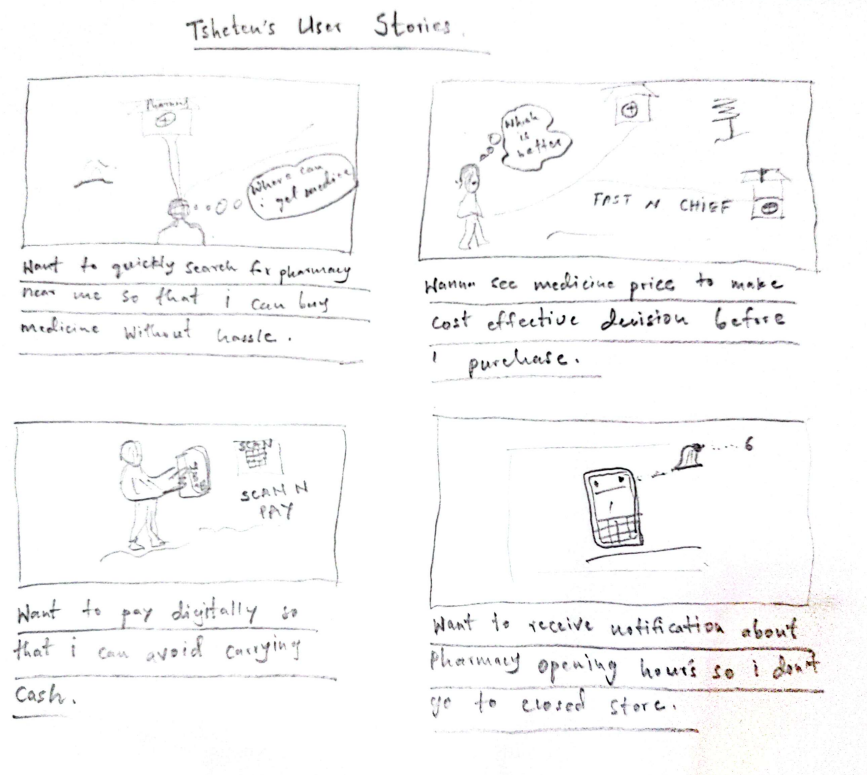 Tsheten's User Stories.
Pharmacy
Where can
i get medicine
Want to quickly search for pharmacy
near me so that i can buy
medicine without hassle.
Which
is
better
FAST N CHIEF
Wanna see medicine price to make
cost effective decision before
i purchase.
SCAN
SCAN N
PAY
Want to pay digitally so
that i can avoid carrying
cash.
6
Want to receive notification about
pharmacy opening hours so i don't
go to closed store.